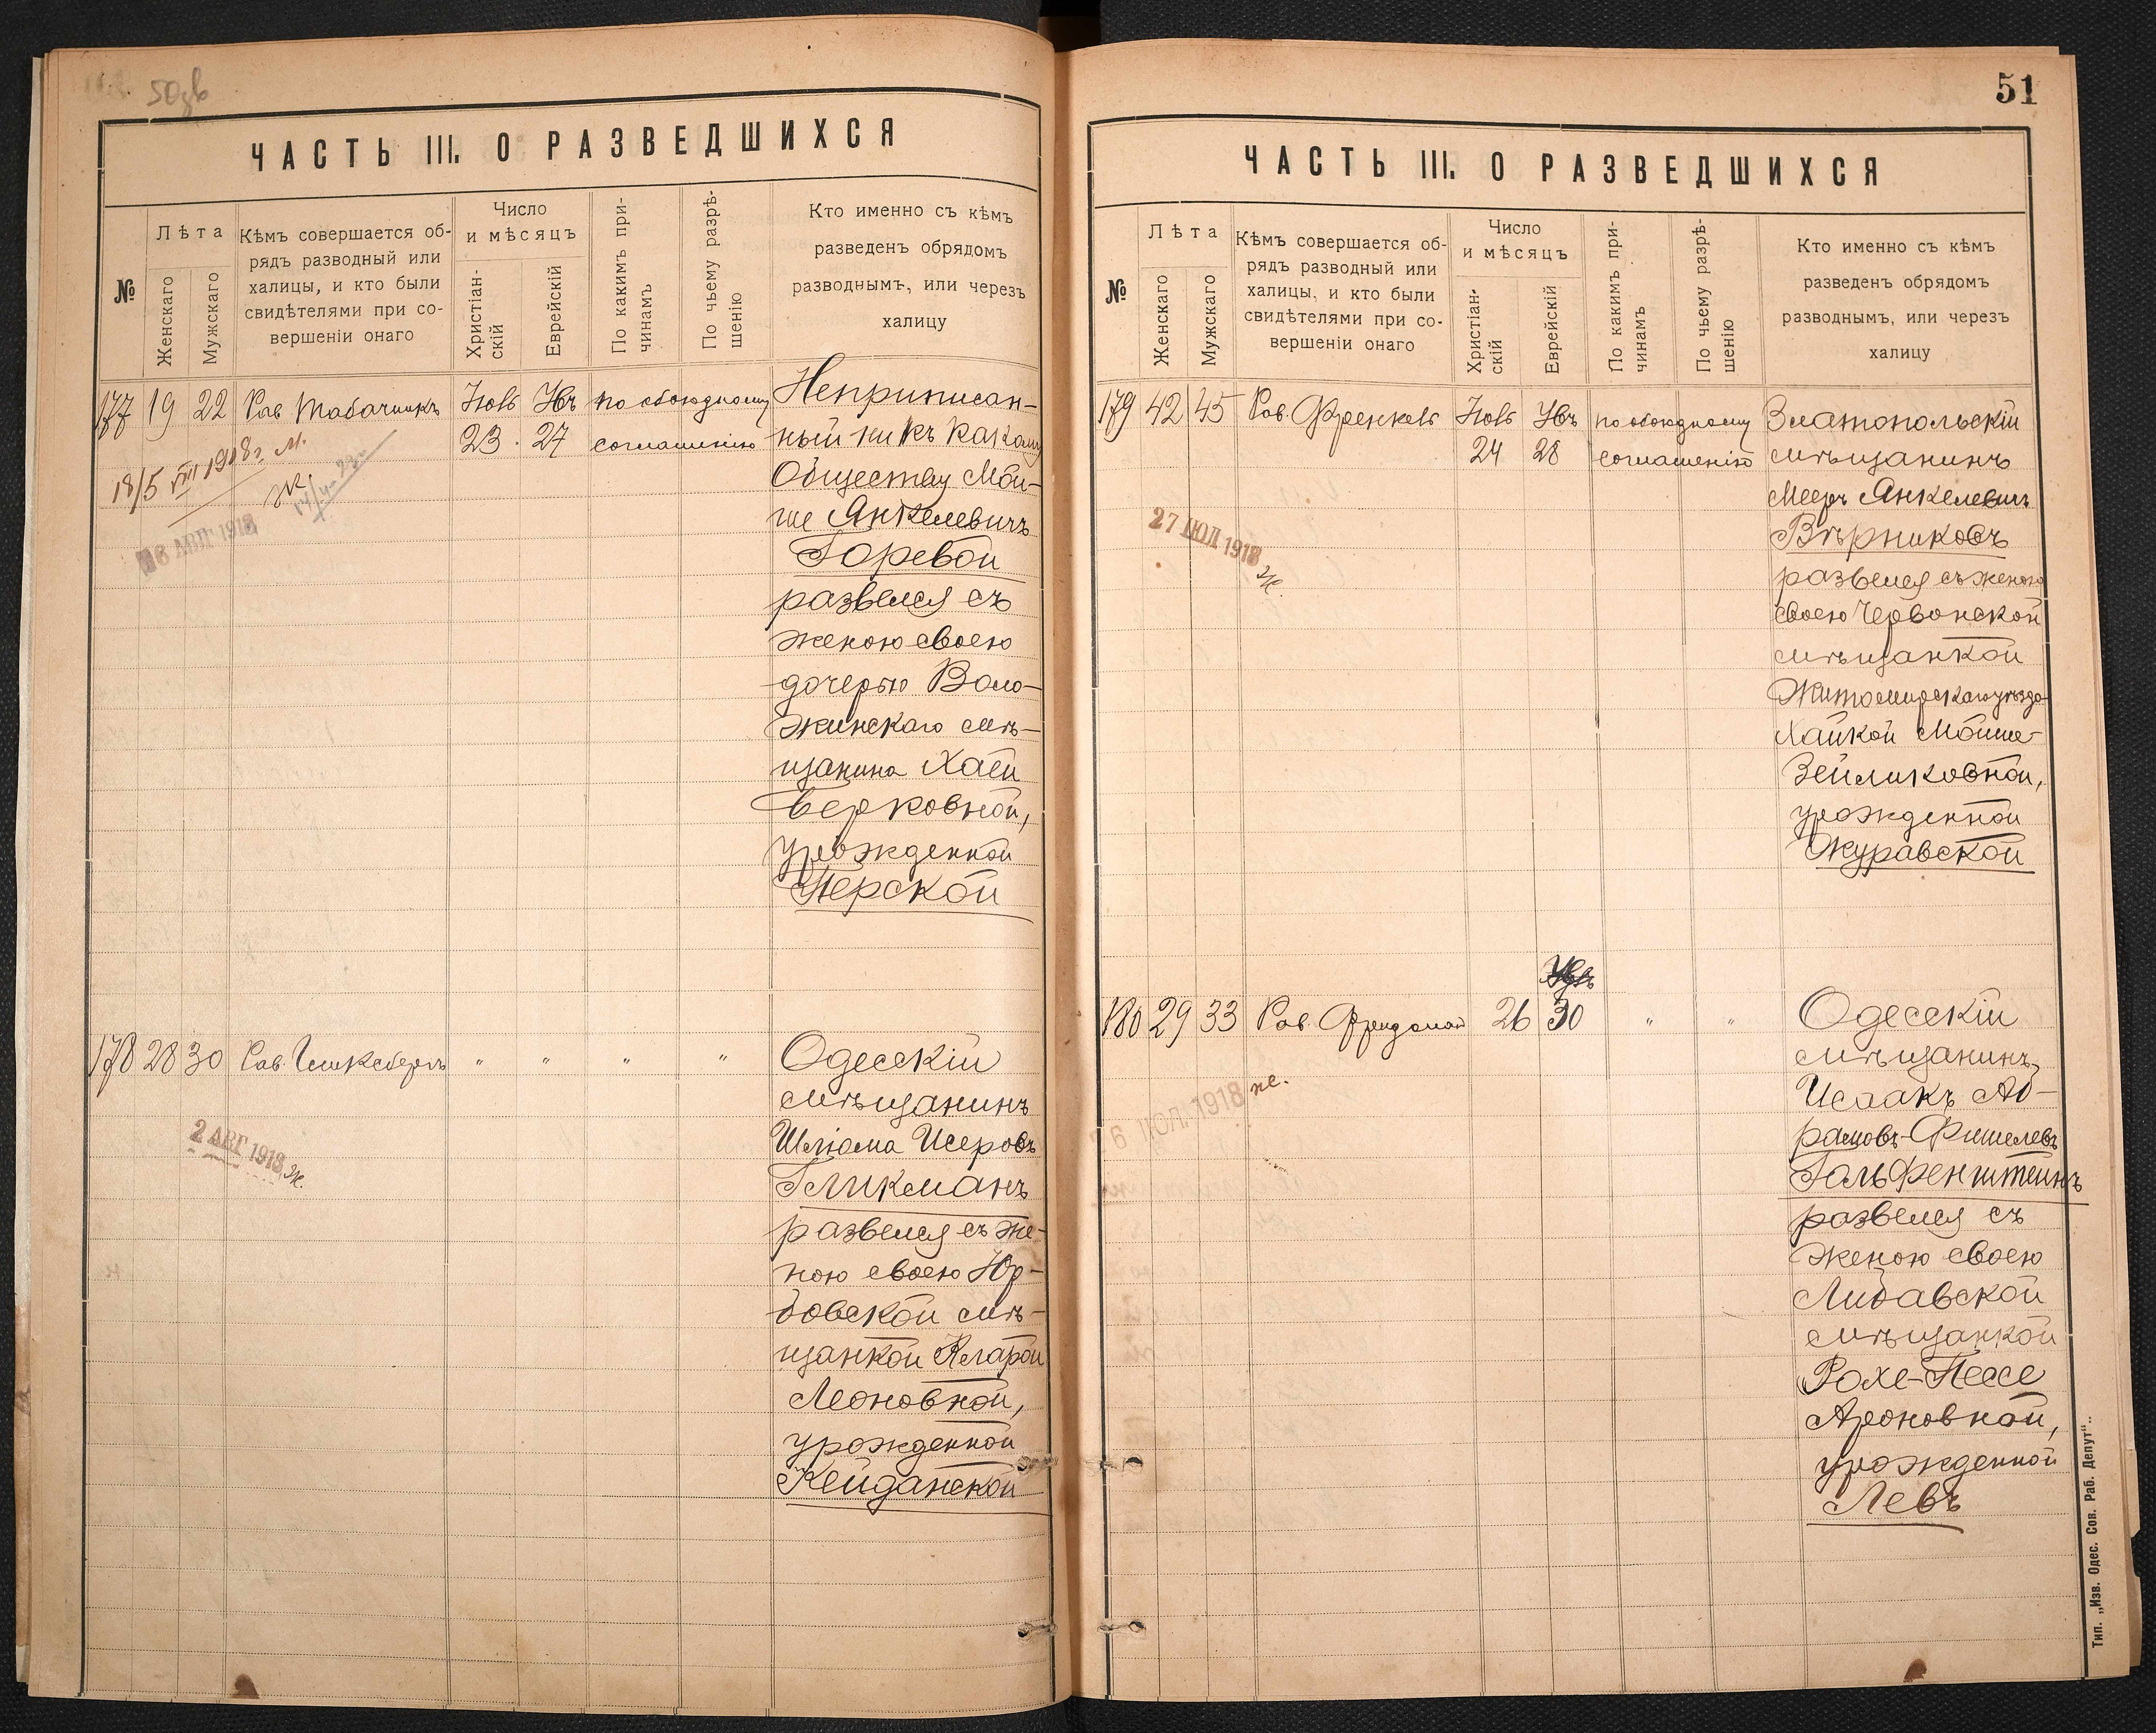 50зв
ЧАСТЬ III. О РАЗВЕДШИХСЯ
№
Лѣта
Женскаго
Мужскаго
Кѣмъ совершается об-
рядъ разводный или
халицы, и кто были
свидѣтелями при со-
вершеніи онаго
Число
и мѣсяцъ
Христіан-
скій
Еврейскій
По какимъ при-
чинамъ
По чьему разрѣ-
шенію
Кто именно съ кѣмъ
разведенъ обрядомъ
разводнымъ, или черезъ
халицу
177 19 22 Рав Табачникъ
23 27
по обоюдному
соглашенію
Неприписан-
ный ни къ какому
Обществу Мой-
ше Янкелевичъ
Горевой
развелся съ
женою своею
дочерью Воло-
жинскаго мѣ-
щанина Хаей
Берковной,
урожденной
Перской
18/5 VIII 1918 г. М.
Ж.
АВГ 1918
178 28 30 Рав.
" " " "
Одесскій
мѣщанинъ
Шліома Исеровъ
Гликманъ
развелся съ же-
ною своею Юр-
бовской мѣ-
щанкой Кларой
Леоновной,
урожденной
Кейданской
2 АВГ 1918 Ж.
51
ЧАСТЬ III. О РАЗВЕДШИХСЯ
№
Лѣта
Женскаго
Мужскаго
Кѣмъ совершается об-
рядъ разводный или
халицы, и кто были
свидѣтелями при со-
вершеніи онаго
Число
и мѣсяцъ
Христіан-
скій
Еврейскій
По какимъ при-
чинамъ
По чьему разрѣ-
шенію
Кто именно съ кѣмъ
разведенъ обрядомъ
разводнымъ, или черезъ
халицу
179 42 45 Рав. Френкель
24 28
по обоюдному
соглашенію
Златопольскій
мѣщанинъ
Мееръ Янкелевичъ
Вѣрниковъ
развелся съ женою
своею Червонской
мѣщанкой
Житомирскаго уѣзда
Хайкой Мойше-
Зейликовной,
урожденной
Журавской
27 ІЮЛ 1918
Ж.
180 29 33 Рав. Фридман
26 30 " "
Одесскій
мѣщанинъ
Исаакъ Аб-
рамовъ-Фишелевъ
Гальфенштейнъ
развелся съ
женою своею
Либавской
мѣщанкой
Рохе-Пессе
Ароновной,
урожденной
Левъ
ІЮЛ 1918 Ж.
Тип. „Изв. Одес. Сов. Раб. Депут“.